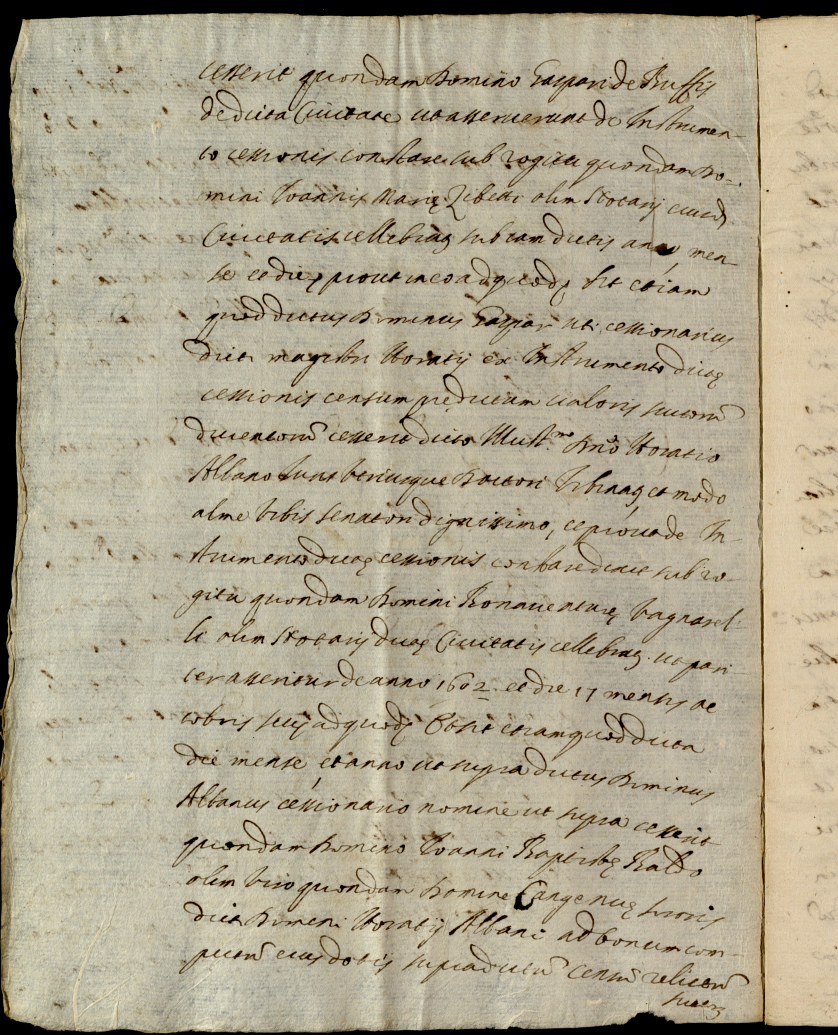 cesserit quondam Domino Gaspari de Ruffis
de dicta Civitate ut asseruerunt de Instrumen-
to cessionis constare sub rogitu quondam Do-
mini Joannis Marie olim Notarij
Civitatis cellebrat sub iam dictis anno men-
se et die prout in eo ad quod sit etiam
quod dictus Dominus Gaspar uti cessionarius
dicti magistri Horatij ex Instrumento dictę
cessionis censum prędictum valoris scutorũ
ducentorũ cesserit dicto Illustmo Dno Horatio
Albano Juris utriusque Doctori Urbinat et modo
alme Urbis senatori dignissimo, et prout de In-
strumento dictę cessionis constare dixit sub ro-
gitu quondam Domini Bonaventurę Vagnarel-
li olim Notarij dictę Civitatis cellebrat ut pari
ter asseritur de anno 1602 et die 17 mensis oc
tobris seu ad quod et sit etiam quod dicta
die mense et anno ut supra dictus Dominus
Albanus cessionario nomine ut supra cesserit
quondam Domino Joanni Baptistę Baldo
olim viro quondam Domine sororis
dicti Domini Horatij Albani ad bonum com-
putũ eius dotis supradictũ censũ